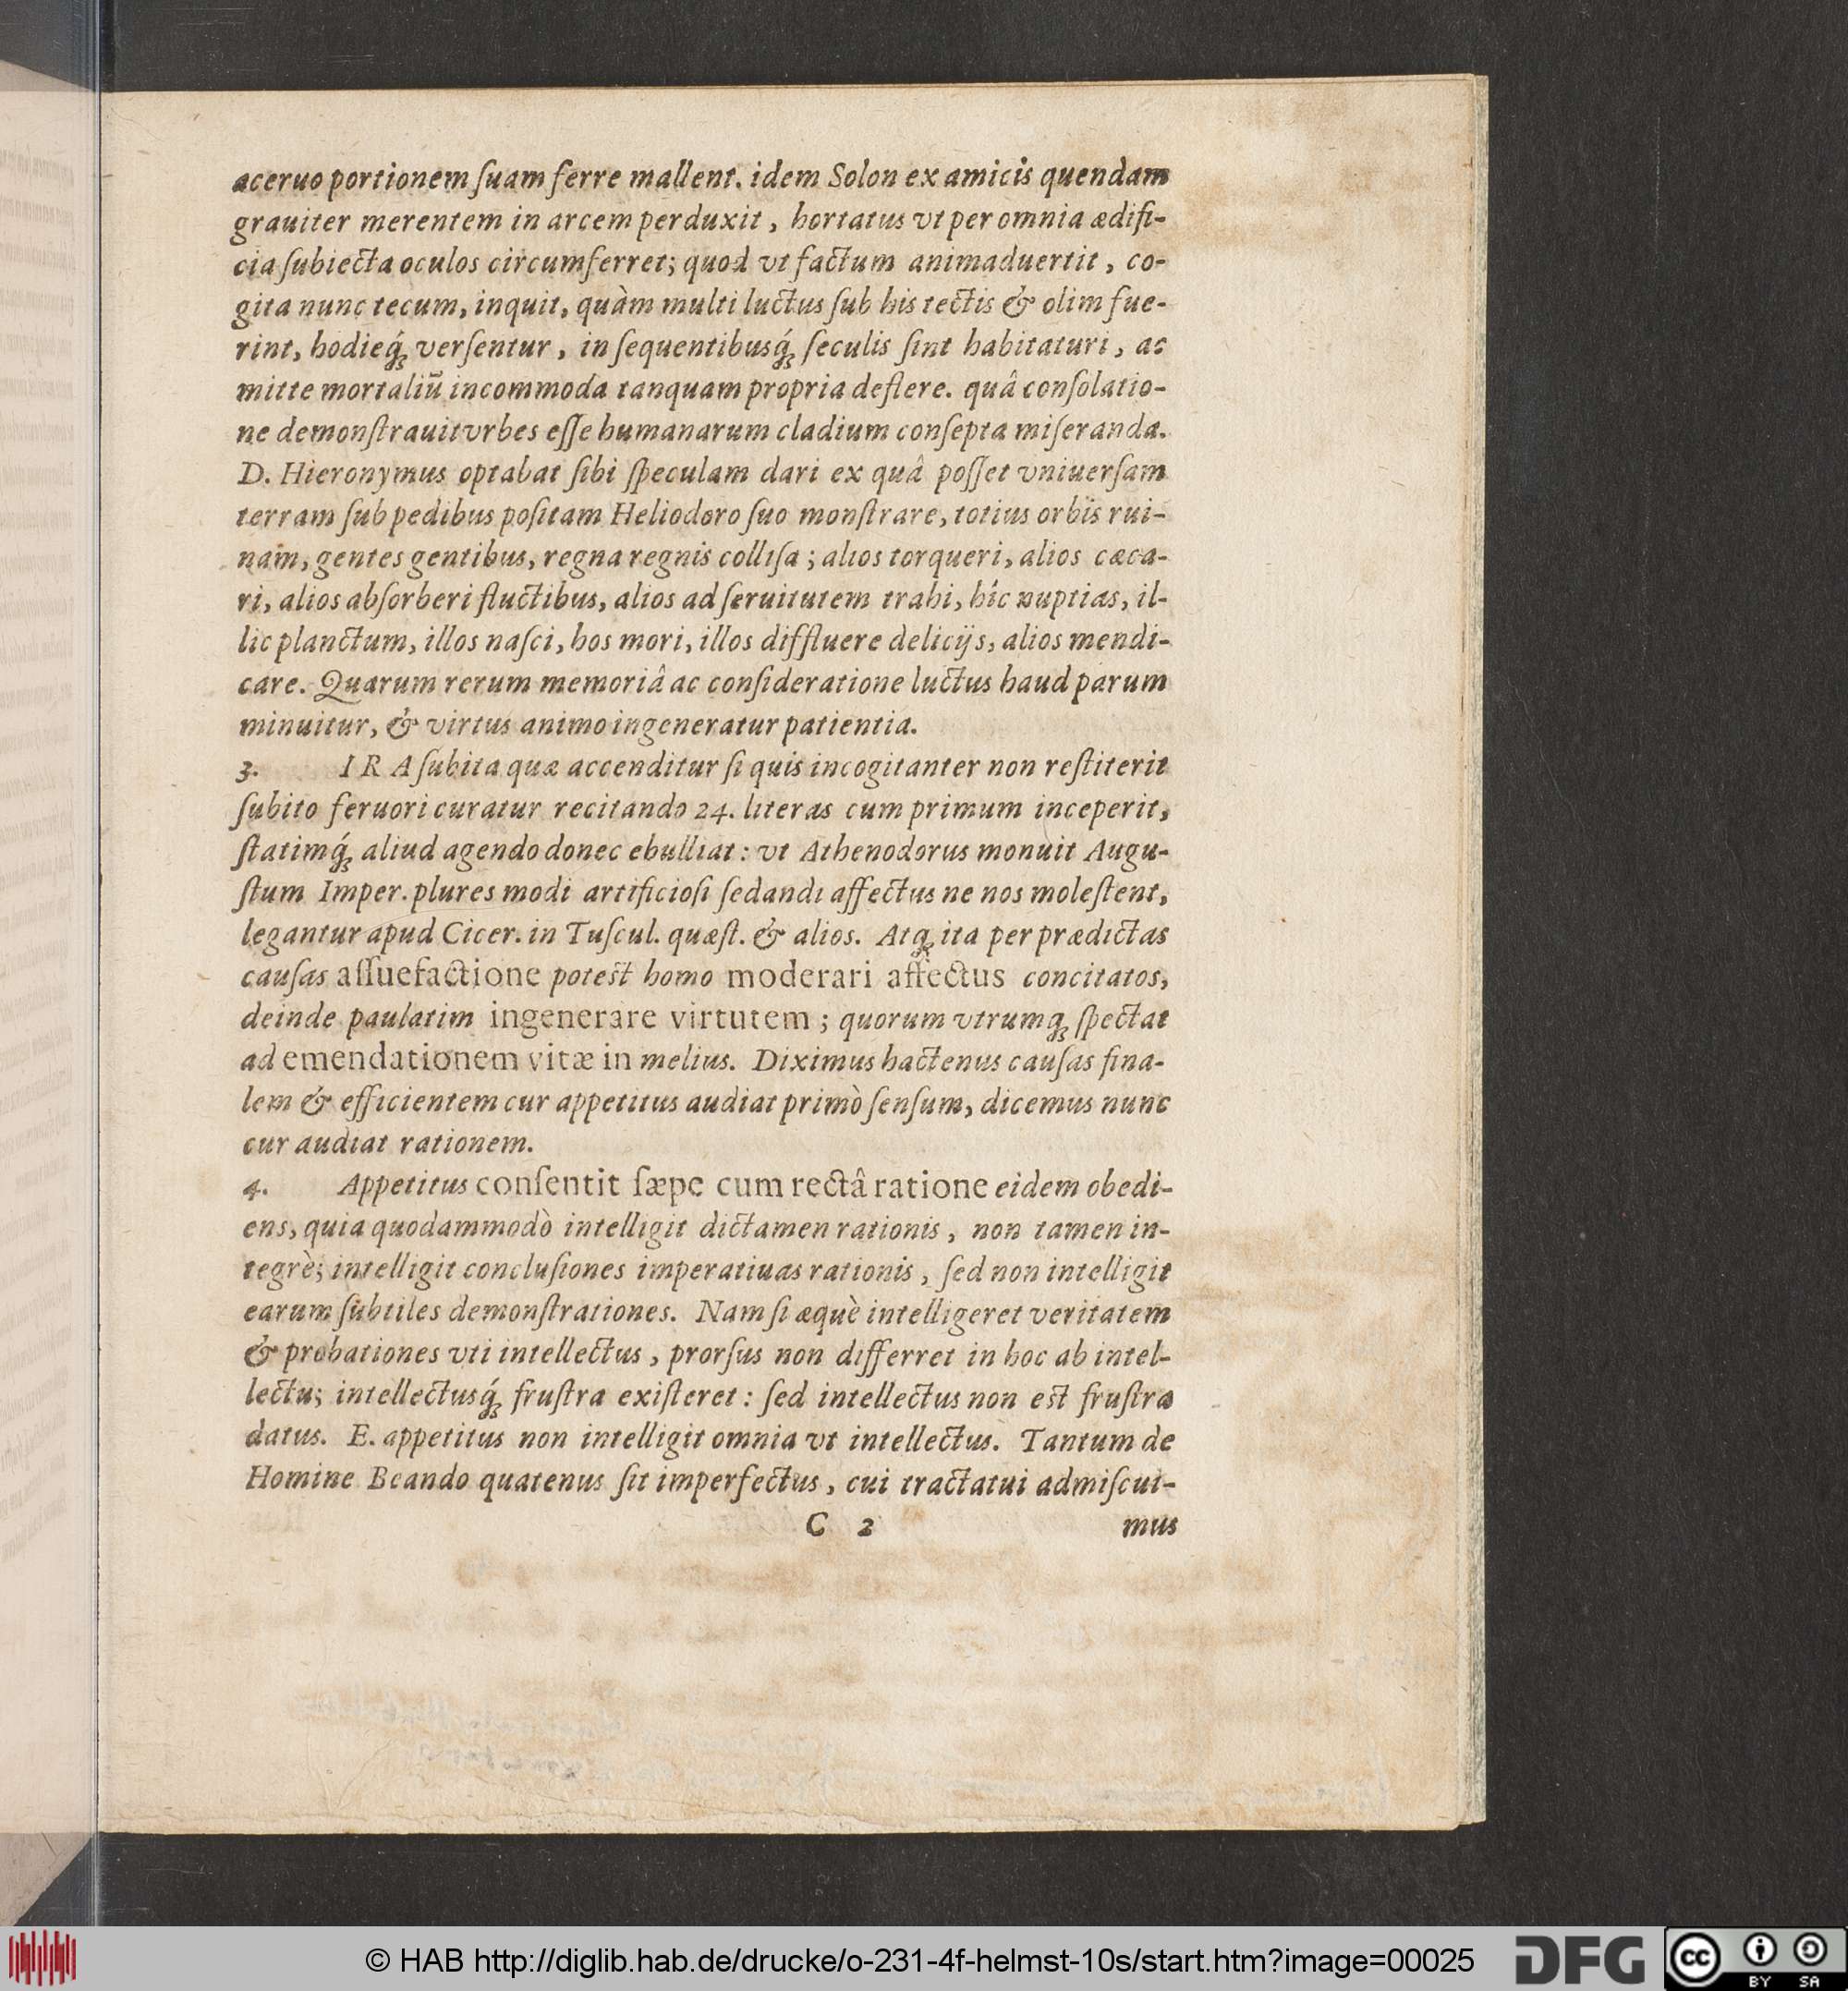 aceruo portionem ſuam ferre mallent. idem Solon ex amicis quendam
grauiter merentem in arcem perduxit, hortatus vt per omnia ædifi-
cia ſubiecta oculos circumferret; quod vt factum animaduertit, co-
gita nunc tecum, inquit, quàm multi luctus ſub his tectis & olim fue-
rint, hodieq́; verſentur, in ſequentibusq́; ſeculis ſint habitaturi, ac
mitte mortaliū incommoda tanquam propria deflere. quâ conſolatio-
ne demonſtrauit vrbes eſſe humanarum cladium conſepta miſeranda.
D. Hieronymus optabat ſibi ſpeculam dari ex quâ poſſet vniuerſam
terram ſub pedibus poſitam Heliodoro ſuo monſtrare, totius orbis rui-
nam, gentes gentibus, regna regnis colliſa; alios torqueri, alios cæca-
ri, alios abſorberi fluctibus, alios ad ſeruitutem trahi, híc nuptias, il-
lic planctum, illos naſci, hos mori, illos diffluere delicijs, alios mendi-
care. Quarum rerum memoriâ ac conſideratione luctus haud parum
minuitur, & virtus animo ingeneratur patientia.
3. IRA ſubita quæ accenditur ſi quis incogitanter non reſtiterit
ſubito feruori curatur recitando 24. literas cum primum inceperit,
ſtatimq́; aliud agendo donec ebulliat: vt Athenodorus monuit Augu-
ſtum Imper. plures modi artificioſi ſedandi affectus ne nos moleſtent,
legantur apud Cicer. in Tuſcul. quæſt. & alios. Atq; ita per prædictas
cauſas aſſuefactione potest homo moderari affectus concitatos,
deinde paulatim ingenerare virtutem; quorum vtrumq; ſpectat
ad emendationem vitæ in melius. Diximus hactenus cauſas fina-
lem & efficientem cur appetitus audiat primò ſenſum, dicemus nunc
cur audiat rationem.
4. Appetitus conſentit ſæpe cum rectâ ratione eidem obedi-
ens, quia quodammodò intelligit dictamen rationis, non tamen in-
tegrè; intelligit concluſiones imperatiuas rationis, ſed non intelligit
earum ſubtiles demonſtrationes. Nam ſi æquè intelligeret veritatem
& probationes vti intellectus, prorſus non differret in hoc ab intel-
lectu; intellectusq́; fruſtra exiſteret: ſed intellectus non est fruſtra
datus. E. appetitus non intelligit omnia vt intellectus. Tantum de
Homine Beando quatenus ſit imperfectus, cui tractatui admiſcui-
C 2 mus
© HAB http://diglib.hab.de/drucke/o-231-4f-helmst-10s/start.htm?image=00025
DFG
cc BY SA